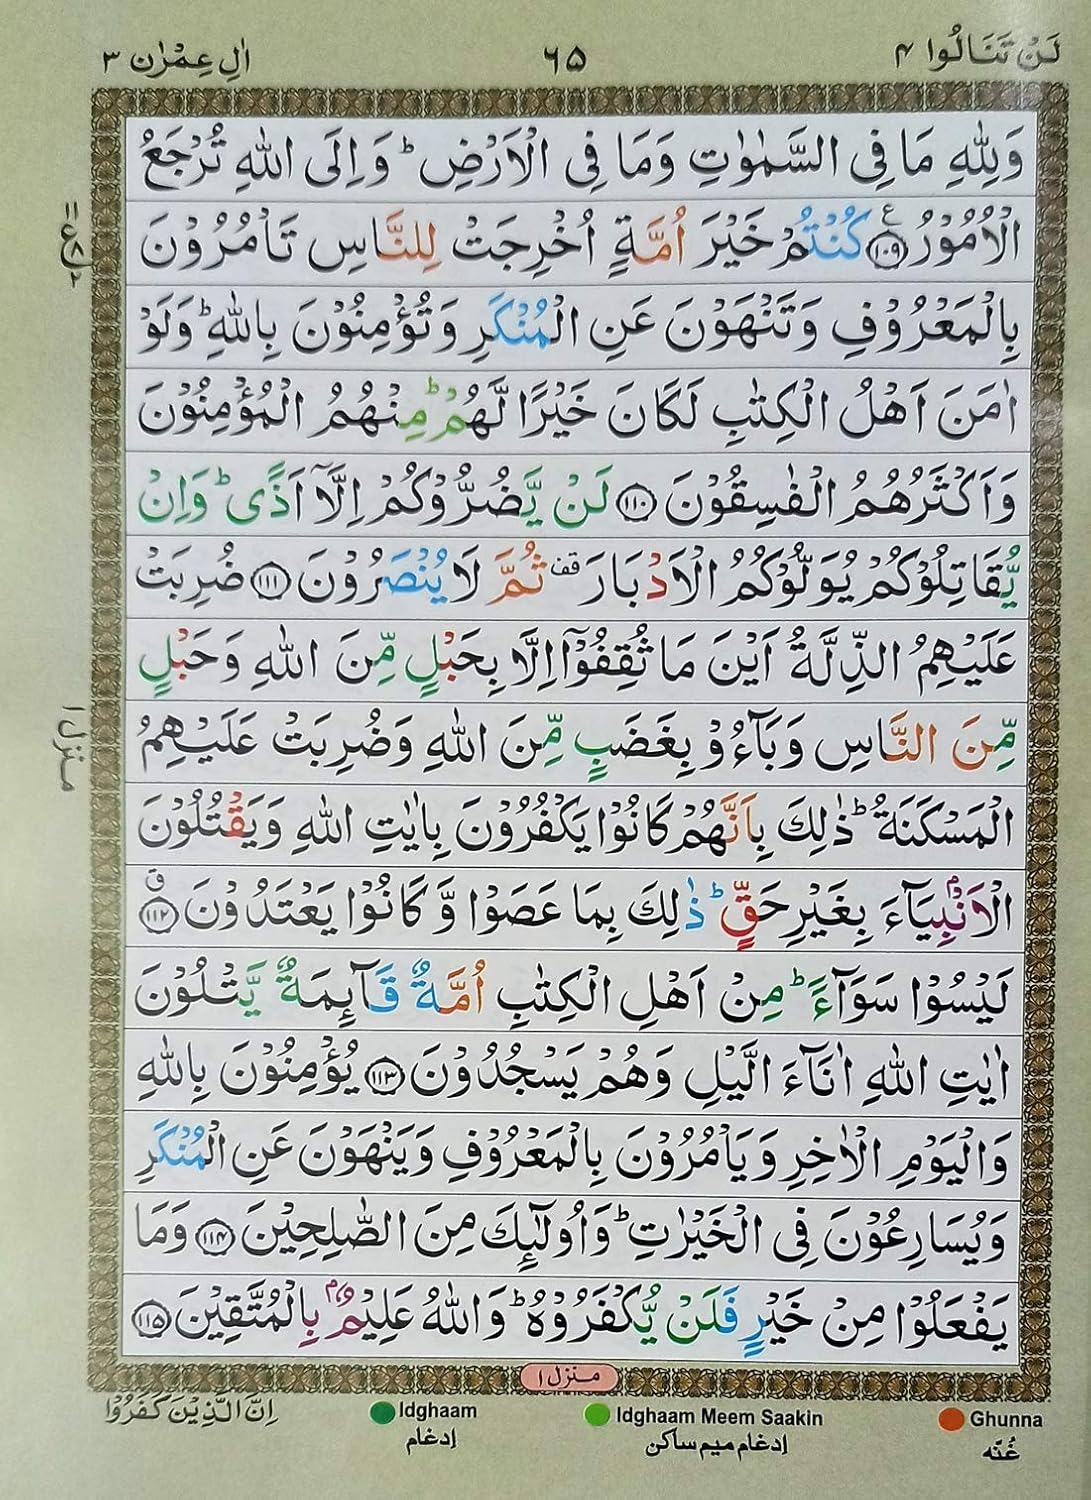 لَنْ تَنَالُوا ۴
۶۵
اٰلِ عِمْرٰن ۳
وَلِلّٰهِ مَا فِى السَّمٰوٰتِ وَمَا فِى الْاَرْضِ ؕ وَاِلَى اللّٰهِ تُرْجَعُ
الْاُمُوْرُ ﴿۱۰۹﴾ ع كُنْتُمْ خَيْرَ اُمَّةٍ اُخْرِجَتْ لِلنَّاسِ تَاْمُرُوْنَ
بِالْمَعْرُوْفِ وَتَنْهَوْنَ عَنِ الْمُنْكَرِ وَتُؤْمِنُوْنَ بِاللّٰهِ ؕ وَلَوْ
اٰمَنَ اَهْلُ الْكِتٰبِ لَكَانَ خَيْرًا لَّهُمْ ؕ مِنْهُمُ الْمُؤْمِنُوْنَ
وَاَكْثَرُهُمُ الْفٰسِقُوْنَ ﴿۱۱۰﴾ لَنْ يَّضُرُّوْكُمْ اِلَّاۤ اَذًى ؕ وَاِنْ
يُّقَاتِلُوْكُمْ يُوَلُّوْكُمُ الْاَدْبَارَ قف ثُمَّ لَا يُنْصَرُوْنَ ﴿۱۱۱﴾ ضُرِبَتْ
عَلَيْهِمُ الذِّلَّةُ اَيْنَ مَا ثُقِفُوْۤا اِلَّا بِحَبْلٍ مِّنَ اللّٰهِ وَحَبْلٍ
مِّنَ النَّاسِ وَبَآءُوْ بِغَضَبٍ مِّنَ اللّٰهِ وَضُرِبَتْ عَلَيْهِمُ
الْمَسْكَنَةُ ؕ ذٰلِكَ بِاَنَّهُمْ كَانُوْا يَكْفُرُوْنَ بِاٰيٰتِ اللّٰهِ وَيَقْتُلُوْنَ
الْاَنْۢبِيَآءَ بِغَيْرِ حَقٍّ ؕ ذٰلِكَ بِمَا عَصَوْا وَّ كَانُوْا يَعْتَدُوْنَ ﴿۱۱۲﴾ ق
لَيْسُوْا سَوَآءً ؕ مِنْ اَهْلِ الْكِتٰبِ اُمَّةٌ قَآئِمَةٌ يَّتْلُوْنَ
اٰيٰتِ اللّٰهِ اٰنَآءَ الَّيْلِ وَهُمْ يَسْجُدُوْنَ ﴿۱۱۳﴾ يُؤْمِنُوْنَ بِاللّٰهِ
وَالْيَوْمِ الْاٰخِرِ وَيَاْمُرُوْنَ بِالْمَعْرُوْفِ وَيَنْهَوْنَ عَنِ الْمُنْكَرِ
وَيُسَارِعُوْنَ فِى الْخَيْرٰتِ ؕ وَاُولٰٓئِكَ مِنَ الصّٰلِحِيْنَ ﴿۱۱۴﴾ وَمَا
يَفْعَلُوْا مِنْ خَيْرٍ فَلَنْ يُّكْفَرُوْهُ ؕ وَاللّٰهُ عَلِيْمٌۢ بِالْمُتَّقِيْنَ ﴿۱۱۵﴾
منزل ۱
منزل ۱
اِنَّ الَّذِيْنَ كَفَرُوْا
Idghaam
ادغام
Idghaam Meem Saakin
ادغام میم ساکن
Ghunna
غُنّه